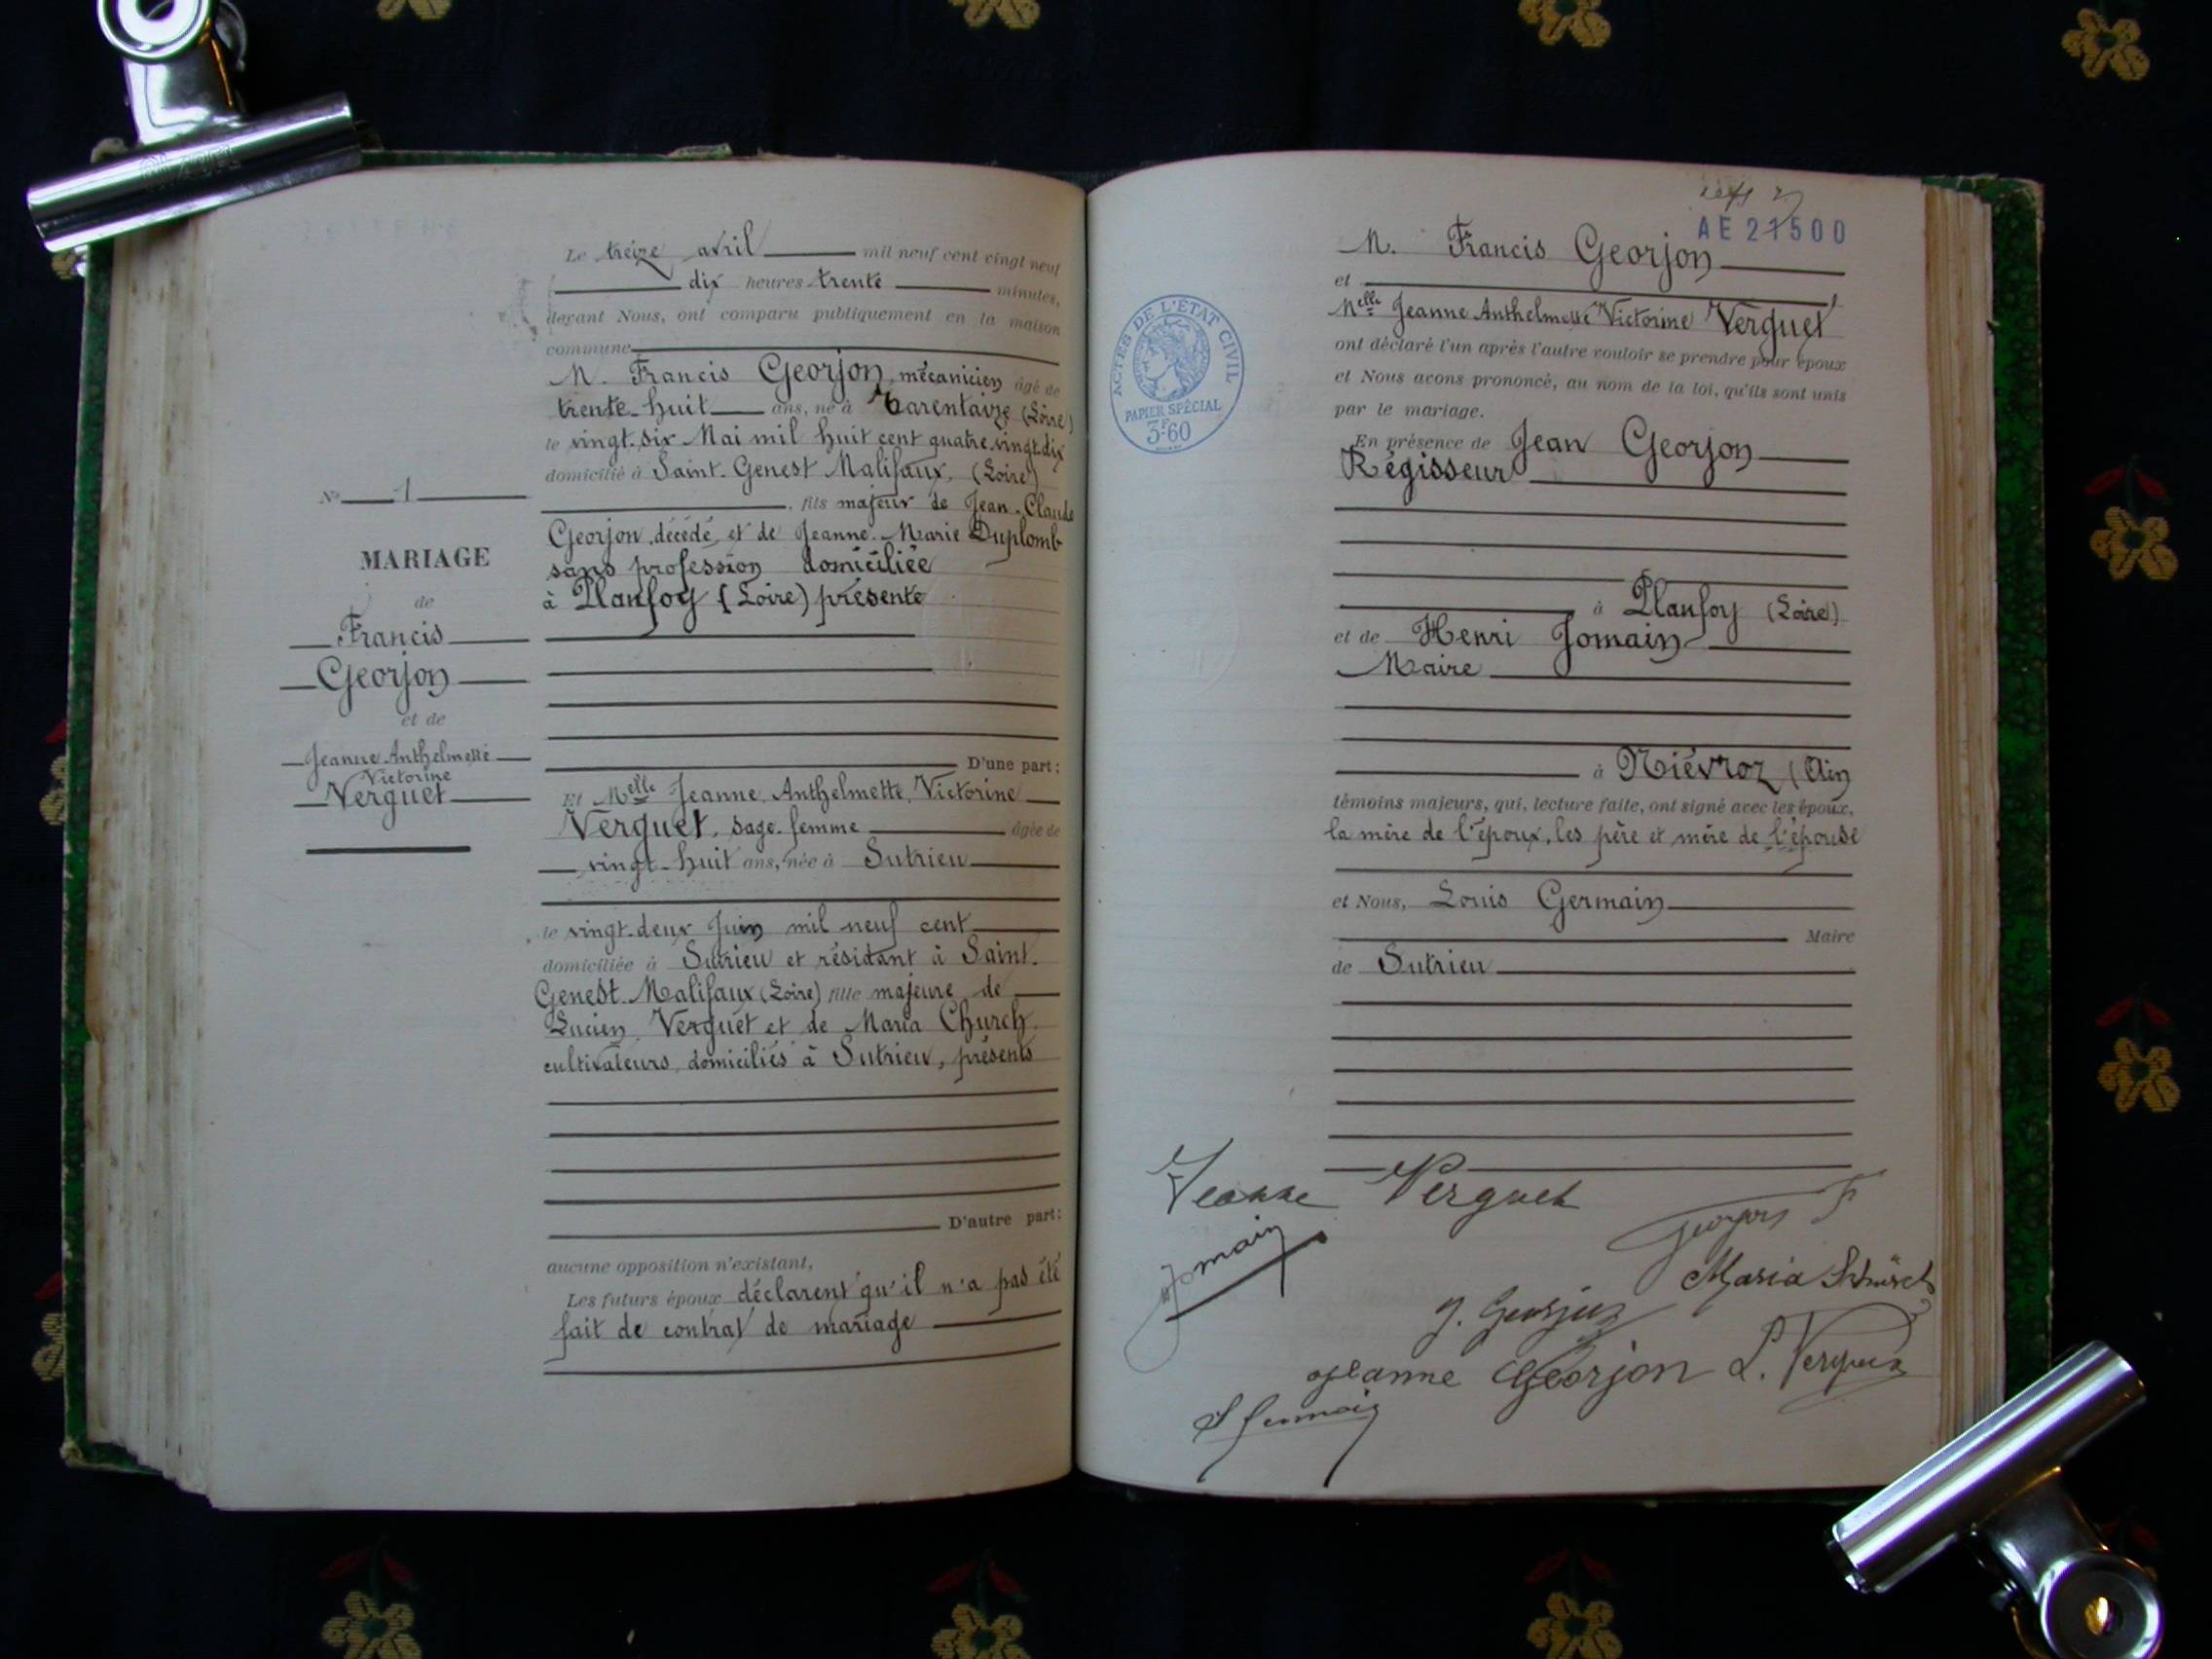 Le treize avril mil neuf cent vingt neuf
dix heures trente minutes,
devant Nous, ont comparu publiquement en la maison
commune
M. Francis Georjon, mécanicien âgé de
trente-huit ans, né à Tarentaize (Loire)
le vingt-six Mai mil huit cent quatre vingt dix
domicilié à Saint-Genest Malifaux, (Loire)
, fils majeur de Jean-Claude
Georjon, décédé, et de Jeanne-Marie Duplomb
sans profession domiciliée
à Planfoy (Loire) présente
D'une part;
Et Melle Jeanne, Anthelmette, Victorine
Verguet, sage-femme âgée de
vingt-huit ans, née à Sutrieu
le vingt-deux Juin mil neuf cent
domiciliée à Sutrieu et résidant à Saint-
Genest-Malifaux (Loire) fille majeure de
Lucien Verguet et de Maria Church,
cultivateurs, domiciliés à Sutrieu, présents
D'autre part:
aucune opposition n'existant,
Les futurs époux déclarent qu'il n'a pas été
fait de contrat de mariage
No 1
MARIAGE
de
Francis
Georjon
et de
Jeanne Anthelmette
Victorine
Verguet
AE 21500
M. Francis Georjon
et
Melle Jeanne Anthelmette Victorine Verguet
ont déclaré l'un après l'autre vouloir se prendre pour époux
et Nous avons prononcé, au nom de la loi, qu'ils sont unis
par le mariage.
En présence de Jean Georjon
Régisseur
à Planfoy (Loire)
et de Henri Jomain
Maire
à Niévroz (Ain)
témoins majeurs, qui, lecture faite, ont signé avec les époux,
la mère de l'époux, les père et mère de l'épouse
et Nous, Louis Germain
Maire
de Sutrieu
ACTES DE L'ÉTAT CIVIL
PAPIER SPÉCIAL
3F60
Jeanne Verguet
Georjon F
Jomain
Maria Schürch
J. Georjon
Jeanne Georjon L. Verguet
L Germain